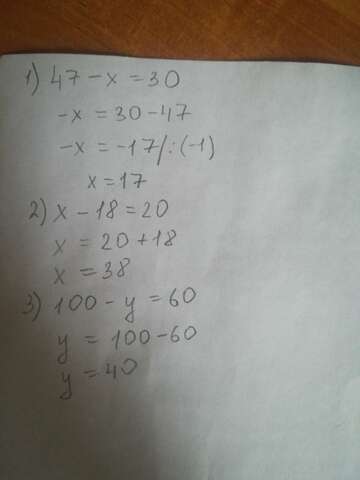 1) 47 - x = 30
-x = 30 - 47
-x = -17 /: (-1)
x = 17
2) x - 18 = 20
x = 20 + 18
x = 38
3) 100 - y = 60
y = 100 - 60
y = 40